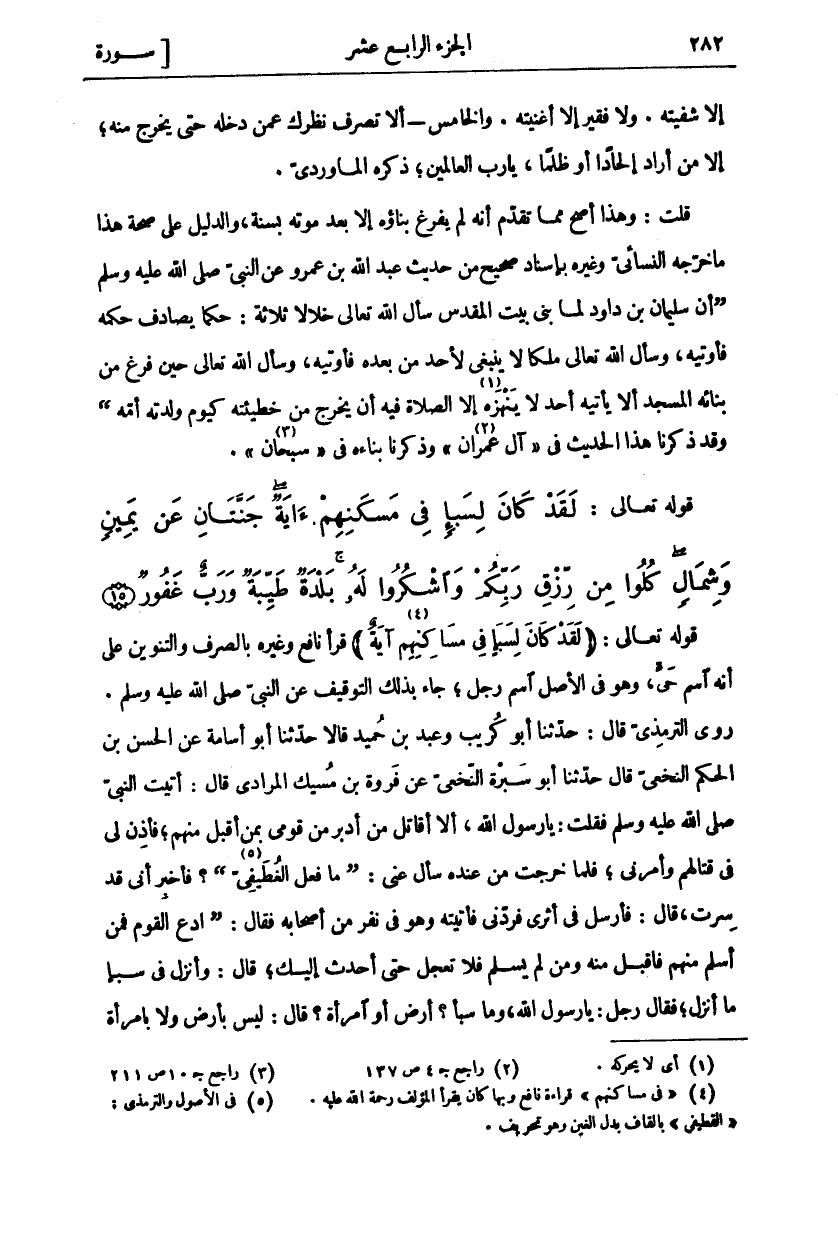 ٢٨٢ الجزء الرابع عشر [ ســورة
إلا شفيته . ولا فقير إلا أغنيته . والخامس – ألا تصرف نظرك عمن دخله حتى يخرج منه ؛
إلا من أراد إلحادا أو ظلما ، يارب العالمين ؛ ذكره المـاوردىّ .
قلت : وهذا أصح ممـا تقدّم أنه لم يفرغ بناؤه إلا بعد موته بسنة ، والدليل على صحة هذا
ما خرّجه النسائىّ وغيره بإسناد صحيح من حديث عبد الله بن عمرو عن النبىّ صلى الله عليه وسلم
” أن سليمان بن داود لمـا بنى بيت المقدس سأل الله تعالى خلالا ثلاثة : حكما يصادف حكمه
فأوتيه ، وسأل الله تعالى ملكا لا ينبغى لأحد من بعده فأوتيه ، وسأل الله تعالى حين فرغ من
بنائه المسجد ألا يأتيه أحد لا يَنْهَزه (١) إلا الصلاة فيه أن يخرج من خطيئته كيوم ولدته أمّه “
وقد ذكرنا هذا الحديث فى « آل عمران (٢) » وذكرنا بناءه فى « سبحان (٣) » .
قوله تعـالى : لَقَدْ كَانَ لِسَبَإٍ فِى مَسْكَنِهِمْ ءَايَةٌ ۖ جَنَّتَـانِ عَن يَمِينٍ
وَشِمَالٍ ۖ كُلُوا مِن رِّزْقِ رَبِّكُمْ وَٱشْكُرُوا لَهُۥ ۚ بَلْدَةٌ طَيِّبَةٌ وَرَبٌّ غَفُورٌ ⑮
قوله تعـالى : ﴿ لَقَدْ كَانَ لِسَبَإٍ فِى مَسَاكِنِهِم (٤) آيَةٌ ﴾ قرأ نافع وغيره بالصرف والتنوين على
أنه آسم حَىٍّ ، وهو فى الأصل آسم رجل ؛ جاء بذلك التوقيف عن النبىّ صلى الله عليه وسلم .
روى الترمذىّ قال : حدّثنا أبو كُريب وعبد بن حُميد قالا حدّثنا أبو أسامة عن الحسن بن
الحكم النخعىّ قال حدّثنا أبو سَبْرة النّخعىّ عن فَروة بن مُسيك المرادى قال : أتيت النبىّ
صلى الله عليه وسلم فقلت : يارسول الله ، ألا أقاتل من أدبر من قومى بمن أقبل منهم ؛ فأذِن لى
فى قتالهم وأمرنى ؛ فلما خرجت من عنده سأل عنى : ” ما فعل الغُطَيفِىّ (٥) “ ؟ فأخبِر أنى قد
سِرت ، قال : فأرسل فى أثرى فردّنى فأتيته وهو فى نفر من أصحابه فقال : ” ادع القوم فمن
أسلم منهم فاقبـل منه ومن لم يسـلم فلا تعجل حتى أحدث إليـك ؛ قال : وأنزل فى سـبإ
ما أنزل ؛ فقال رجل : يارسول الله ، وما سبأ ؟ أرض أو آمرأة ؟ قال : ليس بأرض ولا بامرأة
(١) أى لا يحركه . (٢) راجع جـ ٤ ص ١٣٧ (٣) راجع جـ ١٠ ص ٢١١
(٤) « فى مساكنهم » قراءة نافع وبها كان يقرأ المؤلف رحمة الله عليه . (٥) فى الأصول والترمذى :
« القطيفى » بالقاف بدل الغين وهو تحريف .